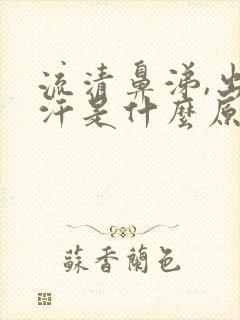 流清鼻涕,出
汗是什麼原
蘇香蘭色